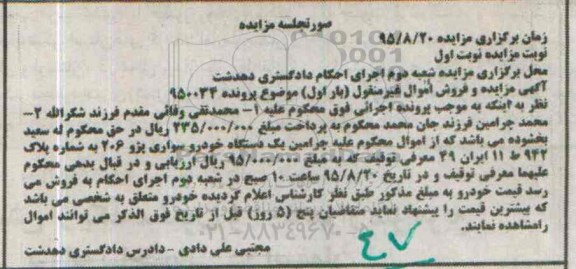 صورتجلسه مزایده
زمان برگزاری مزایده ۹۵/۸/۲۰
نوبت مزایده نوبت اول
محل برگزاری مزایده شعبه دوم اجرای احکام دادگستری دهدشت
آگهی مزایده و فروش اموال غیرمنقول (بار اول) موضوع پرونده ۹۵۰۰۳۴
نظر به اینکه به موجب پرونده اجرائی فوق محکوم علیه ۱- محمدتقی وفائی مقدم فرزند شکرالله ۲-
محمد چرامین فرزند جان محمد محکوم به پرداخت مبلغ ۲۳۵/۰۰۰/۰۰۰ ریال در حق محکوم له سعید
بخشوده می باشد که از اموال محکوم علیه چرامین یک دستگاه خودرو سواری پژو ۲۰۶ به شماره پلاک
۹۴۲ ط ۱۱ ایران ۴۹ معرفی توقیف که به مبلغ ۹۵/۰۰۰/۰۰۰ ریال ارزیابی و در قبال بدهی محکوم
علیهما معرفی توقیف و در تاریخ ۹۵/۸/۲۰ ساعت ۱۰ صبح در شعبه دوم اجرای احکام به فروش می
رسد قیمت خودرو به مبلغ مذکور طبق نظر کارشناس اعلام گردیده خودرو متعلق به شخصی می باشد
که بیشترین قیمت را پیشنهاد نماید متقاضیان پنج (۵ روز) قبل از تاریخ فوق الذکر می توانند اموال
رامشاهده نمایند.
مجتبی علی دادی - دادرس دادگستری دهدشت
۴۷
۰۲۱-۸۸۳۴۹۶۷۰